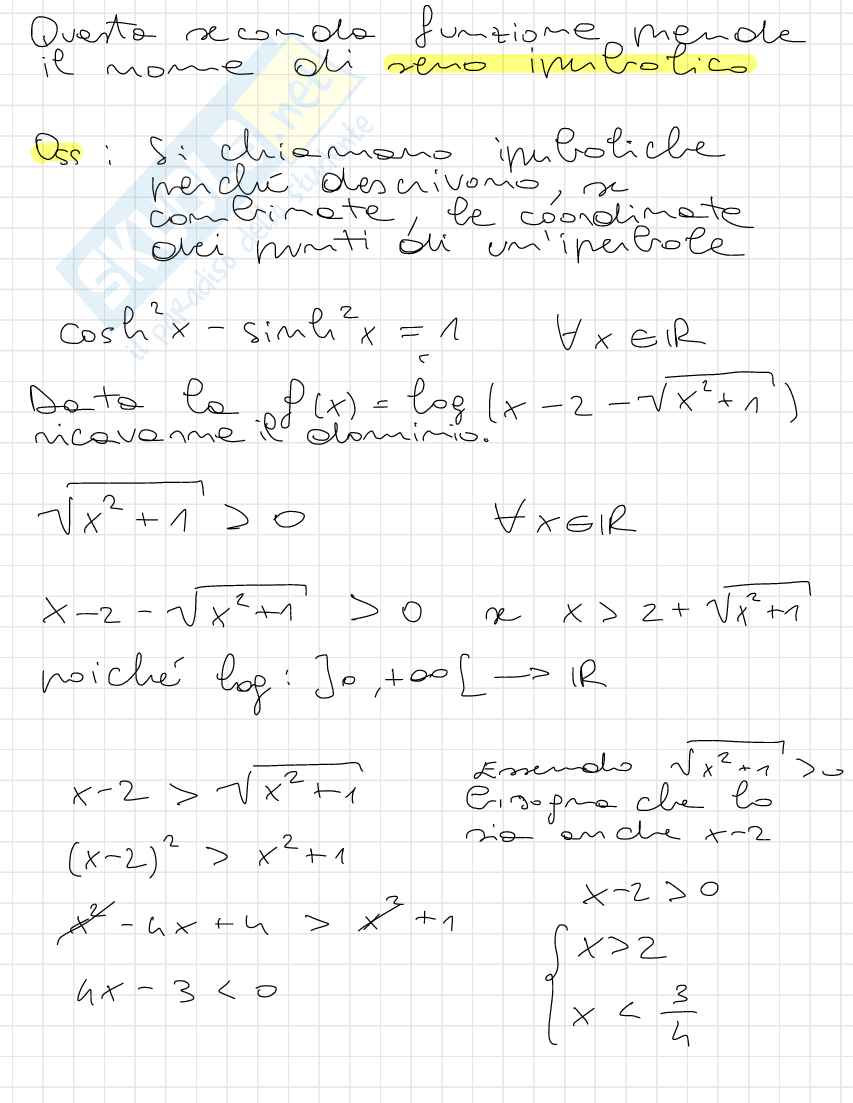 Questa seconda funzione prende
il nome di seno iperbolico
Oss : Si chiamano iperboliche
perché descrivono, se
combinate, le coordinate
dei punti di un'iperbole
cosh²x - sinh²x = 1 ∀ x ∈ ℝ
Data la f(x) = log (x - 2 - √(x² + 1))
ricavarne il dominio.
√(x² + 1) > 0 ∀ x ∈ ℝ
x - 2 - √(x² + 1) > 0 se x > 2 + √(x² + 1)
poiché log : ]0, +∞[ → ℝ
x - 2 > √(x² + 1)
(x - 2)² > x² + 1
x² - 4x + 4 > x² + 1
4x - 3 < 0
Essendo √(x² + 1) > 0
bisogna che lo
sia anche x - 2
x - 2 > 0
{ x > 2
x < 3/4
SKUOLA.net
il paradiso dello studente